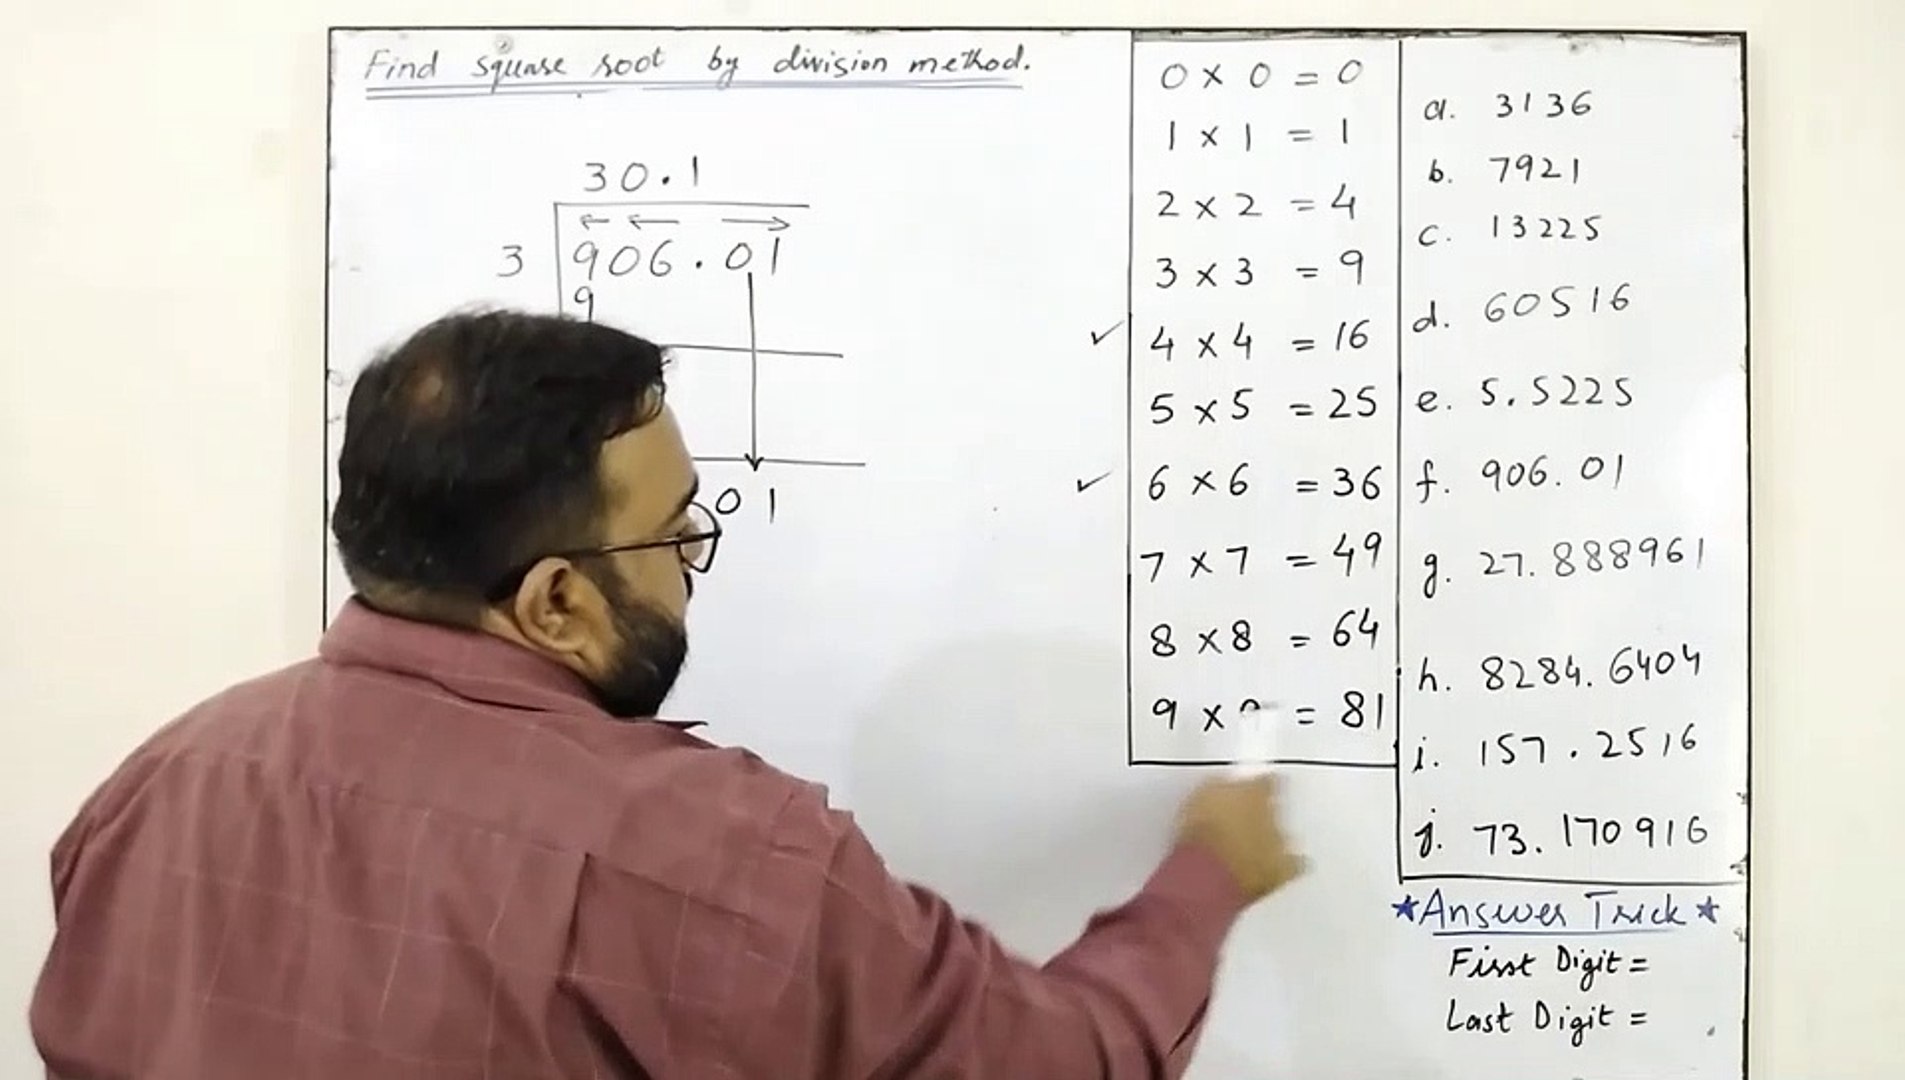 Find square root by division method.
30.1
3 906.01
9
01
0 × 0 = 0
1 × 1 = 1
2 × 2 = 4
3 × 3 = 9
✓ 4 × 4 = 16
5 × 5 = 25
✓ 6 × 6 = 36
7 × 7 = 49
8 × 8 = 64
9 × 9 = 81
a. 3136
b. 7921
c. 13225
d. 60516
e. 5.5225
f. 906.01
g. 27.888961
h. 8284.6404
i. 157.2516
j. 73.170916
★Answer Trick★
First Digit =
Last Digit =